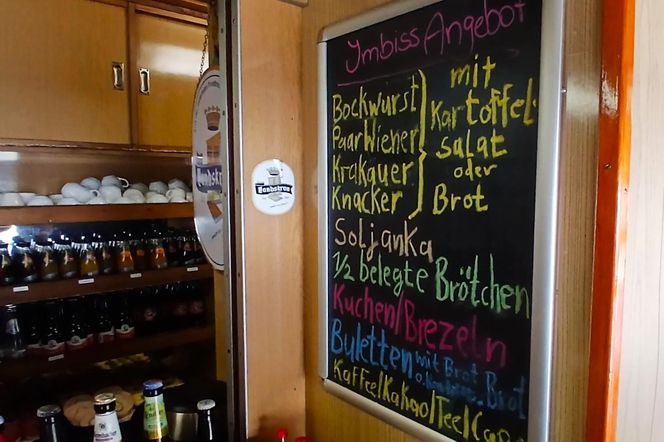 Imbiss Angebot
Bockwurst
Paar Wiener
Krakauer
Knacker
mit
Kartoffel-
salat
oder
Brot
Soljanka
1/2 belegte Brötchen
Kuchen/Brezeln
Buletten mit Brot
Brot
Kaffee/Kakao/Tee/